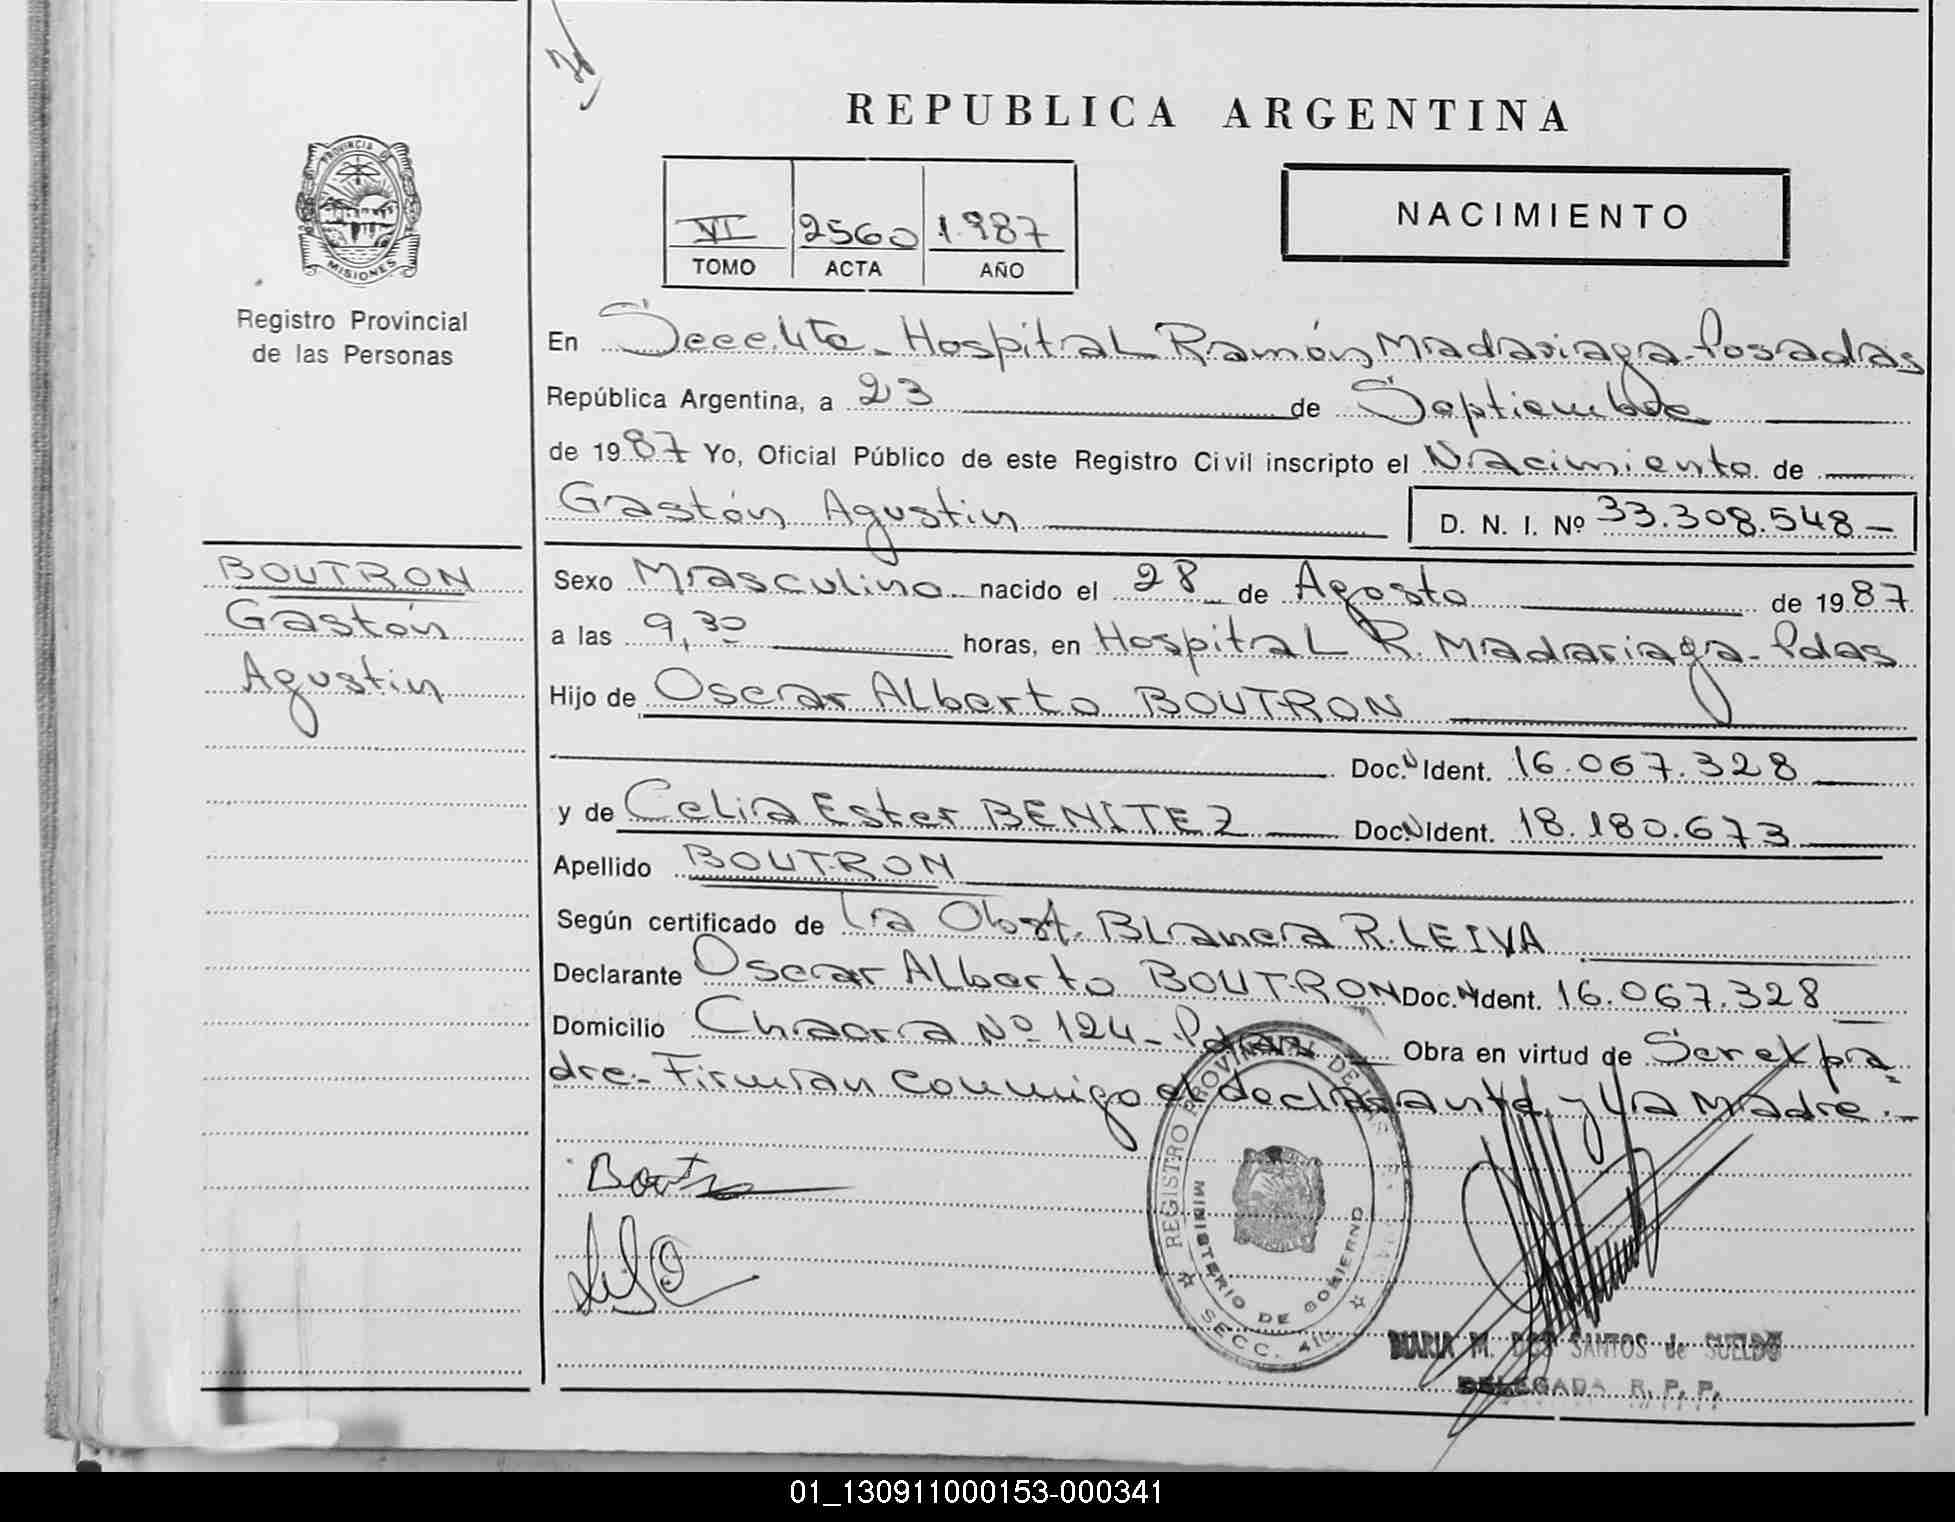 REPUBLICA ARGENTINA
PROVINCIA DE
MISIONES
Registro Provincial
de las Personas
VI 2560 1.987
TOMO ACTA AÑO
NACIMIENTO
En Seccita. Hospital Ramón Madariaga - Posadas
República Argentina, a 23 de Septiembre
de 1987 Yo, Oficial Público de este Registro Civil inscripto el Nacimiento de
Gastón Agustin
D. N. I. Nº 33.308.548 -
BOUTRON
Gastón
Agustin
Sexo Masculino nacido el 28 de Agosto de 1987
a las 9,30 horas, en Hospital R. Madariaga - Pdas
Hijo de Oscar Alberto BOUTRON
Doc. N Ident. 16.067.328
y de Celia Ester BENITEZ Doc. N Ident. 18.180.673
Apellido BOUTRON
Según certificado de La Obst. Blanca R. LEIVA
Declarante Oscar Alberto BOUTRON Doc. N Ident. 16.067.328
Domicilio Chacra Nº 124 - Pdas Obra en virtud de Ser el pa
dre.- Firman conmigo el declarante y la Madre.-
Boutro
REGISTRO PROVINCIAL DE LAS
MINISTERIO DE GOBIERNO
SECC. 4
MARIA M. DOS SANTOS de SUELDO
DELEGADA R. P. P.
01_130911000153-000341